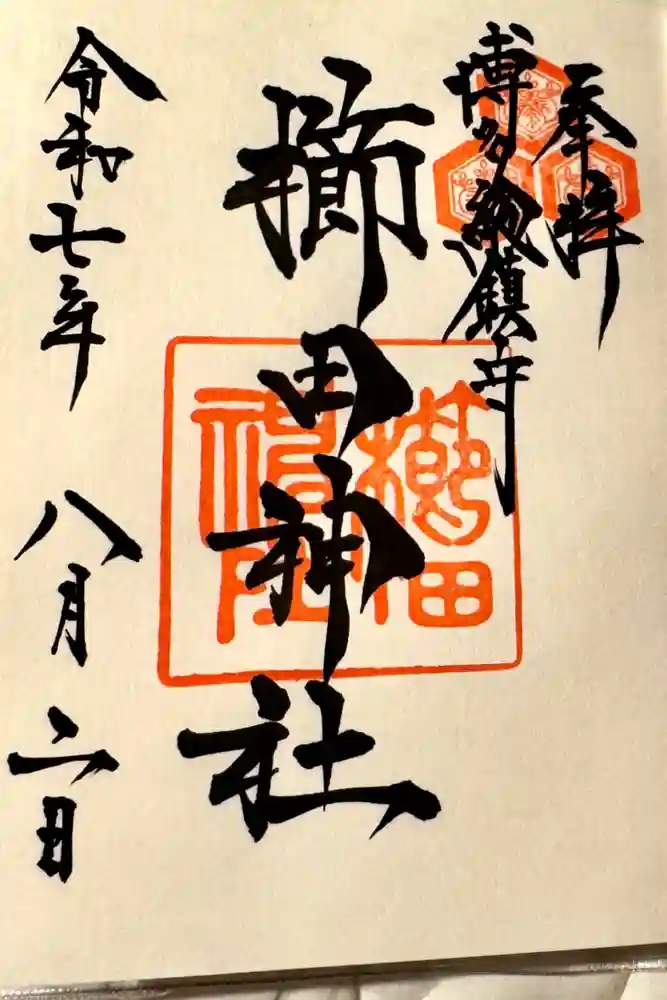 奉拝
博多総鎮守
櫛田神社
令和七年 八月二日
櫛田
神社